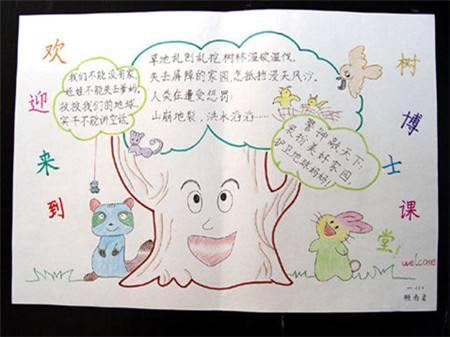 欢
迎
来
到
我们不能没有家,
娃娃不能失去爹妈,
救救我们的地球,
实干不能讲空话。
草地乱刨乱挖,树林滥砍滥伐,
失去屏障的家园,怎抵挡漫天风沙。
人类在遭受惩罚:
山崩地裂,洪水滔滔……
警钟敲天下,
爱惜美好家园,
护卫地球妈妈!
树
博
士
课
堂!
welcome